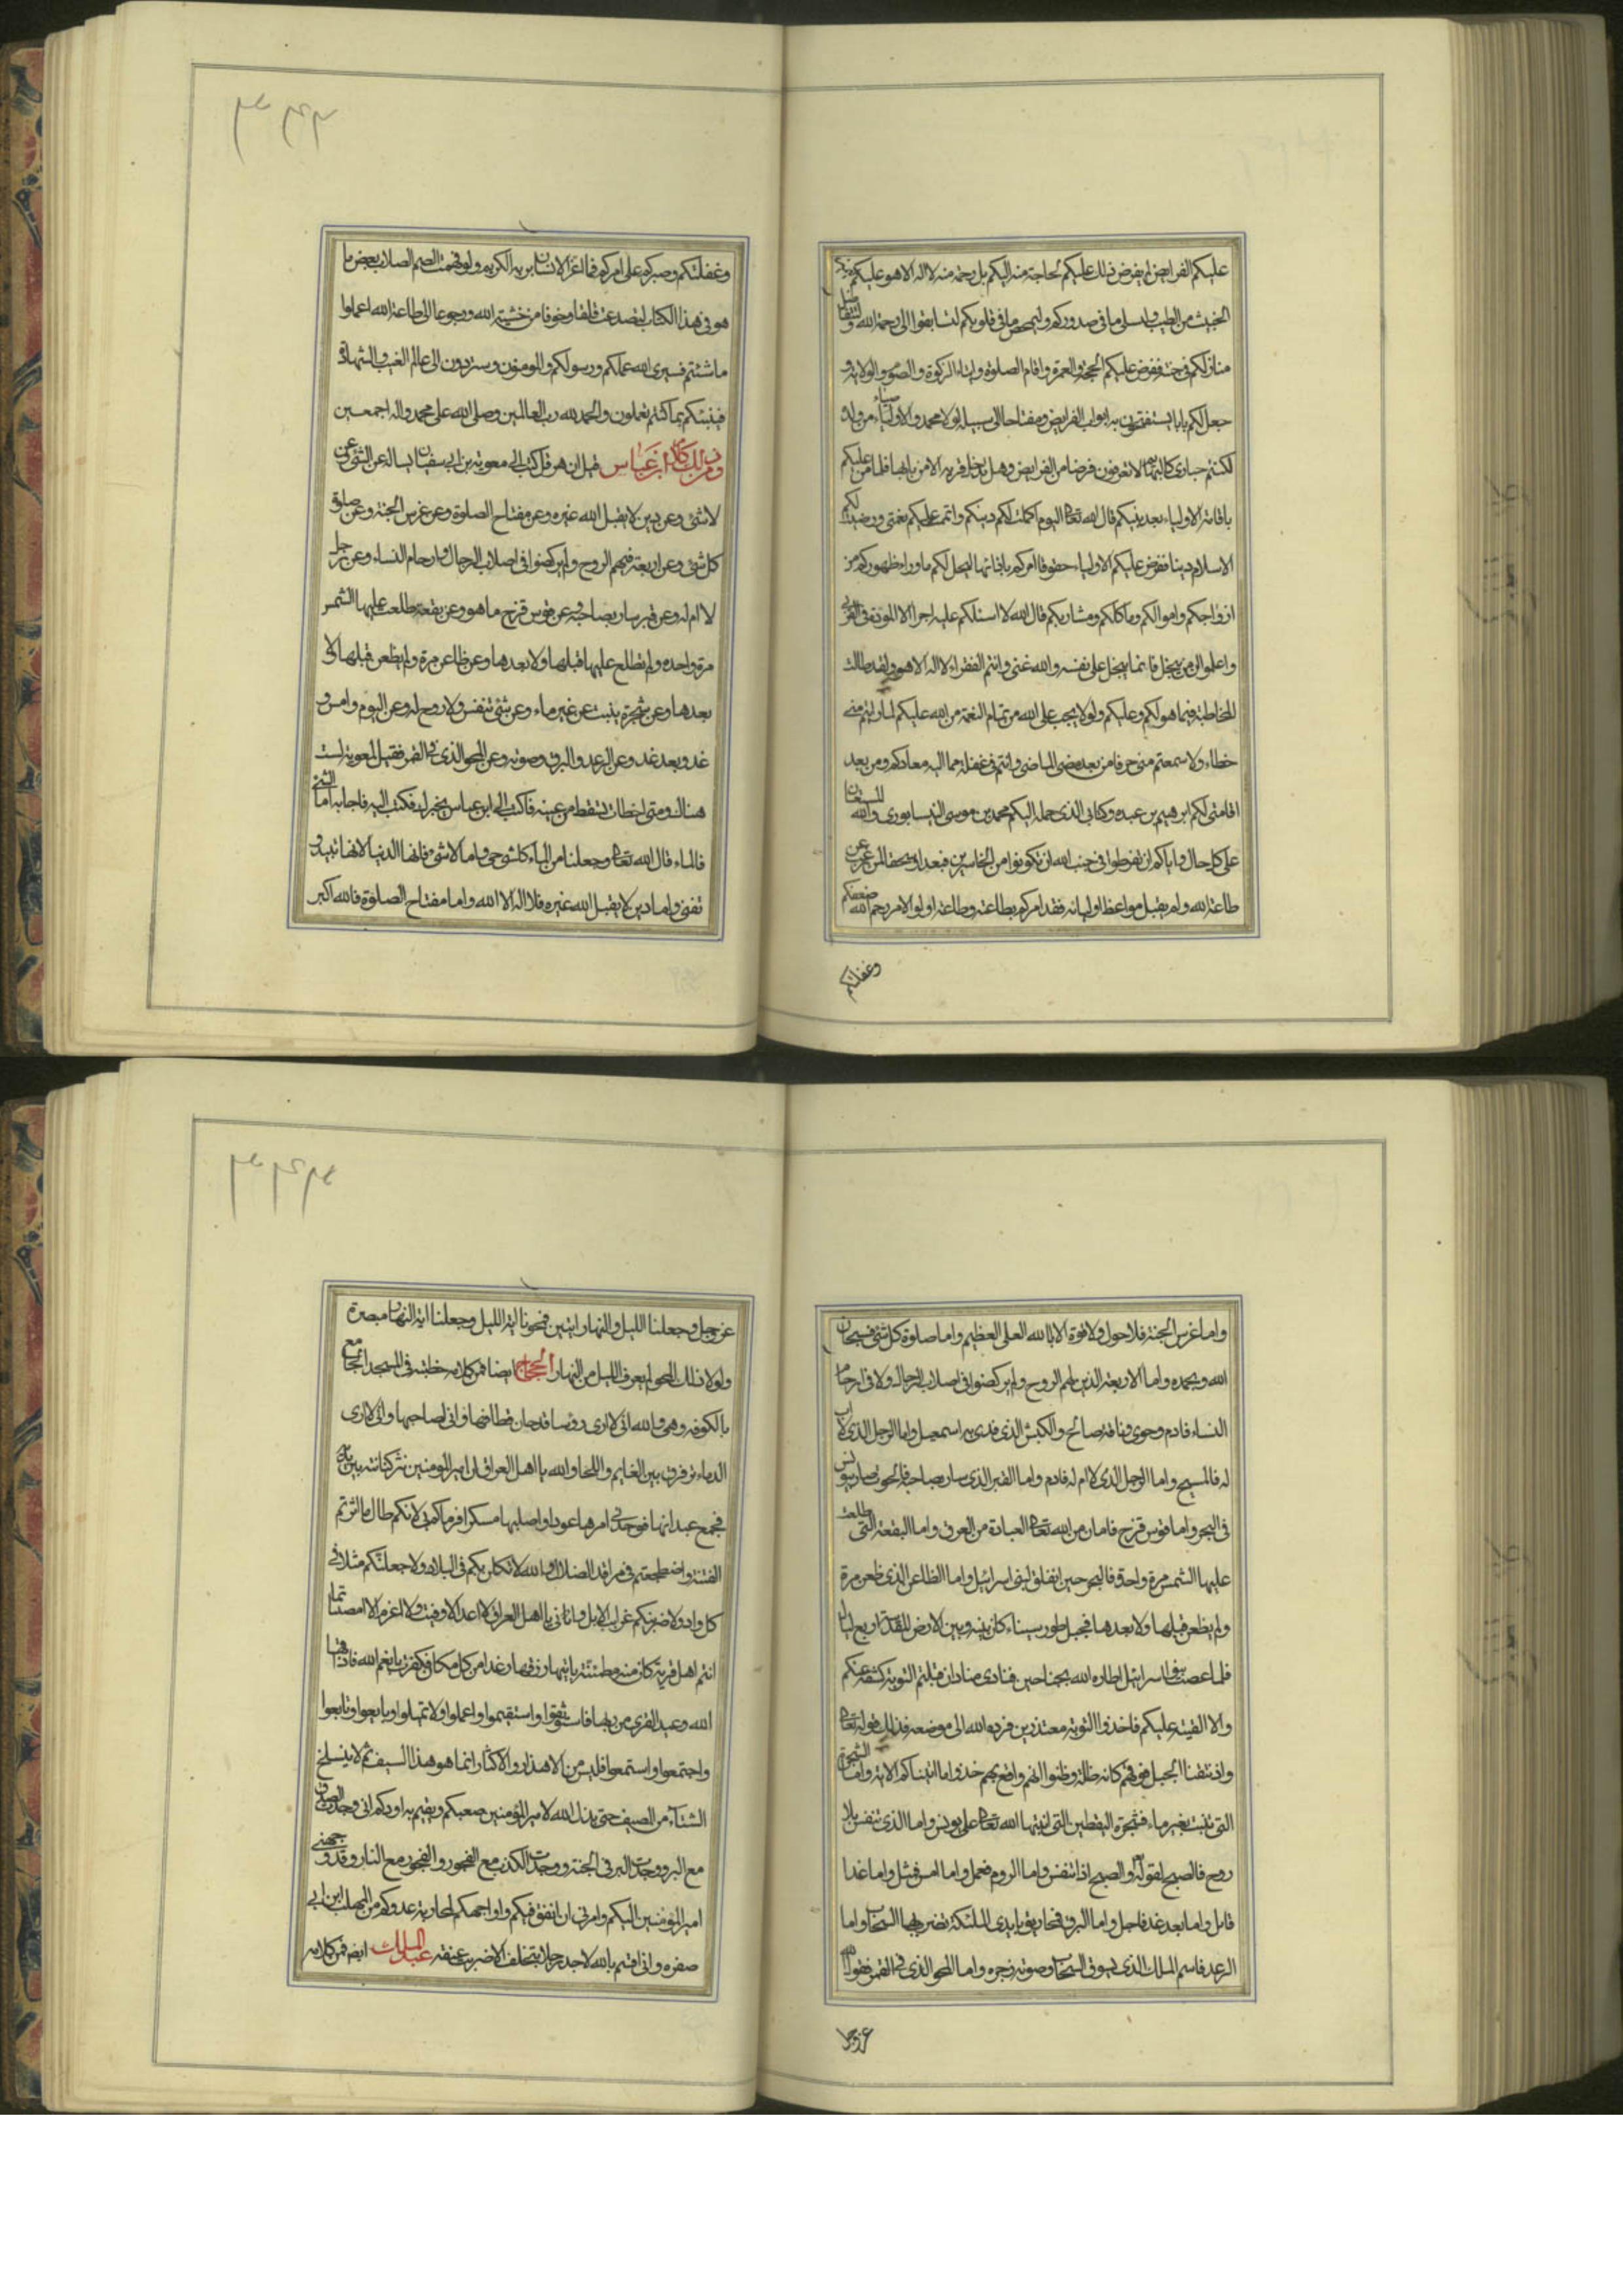 عليكم الفرايض لم يفرض ذلك عليكم لحاجة منه اليكم بل رحمة منه لا اله الا هو عليكم ليميز
الخبيث من الطيب وليبتلى ما فى صدوركم وليمحص ما فى قلوبكم لتسابقوا الى رحمة الله ولتتفاضل
منازلكم فى جنته ففرض عليكم الحج والعمرة واقام الصلوة وايتاء الزكوة والصوم والولاية و
جعل لكم بابا يستفتحون به ابواب الفرايض ومفتاحا الى سبيله لولا محمد والاوصياء من ولده
لكنتم حيارى كالبهايم لا تعرفون فرضا من الفرايض وهل يدخل قرية الا من بابها فلما من عليكم
باقامة الاولياء بعد نبيكم قال الله تعالى اليوم اكملت لكم دينكم واتممت عليكم نعمتى ورضيت لكم
الاسلام دينا ففرض عليكم الاولياء حقوقا امركم بادائها اليهم ليحل لكم ما وراء ظهوركم من
ازواجكم واموالكم ومآكلكم ومشاربكم قال الله لا اسئلكم عليه اجرا الا المودة فى القربى
واعلموا ان من يبخل فانما يبخل على نفسه والله غنى وانتم الفقراء لا اله الا هو ولقد طالت
المخاطبة فيما هو لكم وعليكم ولولا يجب على الله من تمام النعمة من الله عليكم لما رايتم منى
خطاء ولا سمعتم منى حرفا من بعد مضى الماضى وانتم فى غفلة عما اليه معادكم ومن بعد
اقامتى لكم ابرهيم بن عبده وكتابى الذى حمله اليكم محمد بن موسى النيسابورى والله المستعان
على كل حال واياكم ان تفرطوا فى جنب الله ان تكونوا من الخاسرين فبعدا وسحقا لمن رغب عن
طاعة الله ولم يقبل مواعظ اوليائه فقد امركم بطاعته وطاعة اولو الامر رحم الله ضعفكم
وغفلتكم
٣٤٢
وغفلتكم وصبركم على امركم فما اغر الانسان بربه الكريم ولو فهمت الصم الصلاب بعض ما
هو فى هذا الكتاب لتصدعت قلقا وخوفا من خشية الله ورجوعا الى طاعة الله اعملوا
ما شئتم فسيرى الله عملكم ورسوله والمومنون وستردون الى عالم الغيب والشهادة
فينبئكم بما كنتم تعملون والحمد لله رب العالمين وصلى الله على محمد واله اجمعين
ومن ذلك كلام ابن عباس قيل ان هرقل كتب الى معوية بن ابى سفيان يساله عن الشئ وعن
لا شئ وعن دين لا يقبل الله غيره وعن مفتاح الصلوة وعن غرس الجنة وعن صلوة
كل شئ وعن اربعة فيهم الروح ولم يركضوا فى اصلاب الرجال وارحام النساء وعن رجل
لا ام له وعن قبر سار بصاحبه وعن قوس قزح ما هو وعن بقعة طلعت عليها الشمس
مرة واحدة ولم تطلع عليها قبلها ولا بعدها وعن ظاعن مرة ولم يظعن قبلها ولا
بعدها وعن شجرة ينبت عن غير ماء وعن شئ تنفس ولا روح له وعن اليوم وامس و
غد وبعد غد وعن الرعد والبرق وصوته وعن المحو الذى فى القمر فقيل لمعوية لست
هناك ومتى اخطات تسقط من عينه فاكتب الى ابن عباس يخبرك فكتب اليه فاجابه اما الشئ
فالماء قال الله تعالى وجعلنا من الماء كل شئ حى واما لا شئ فانها الدنيا لانها تبيد و
تفنى واما دين لا يقبل الله غيره فلا اله الا الله واما مفتاح الصلوة فالله اكبر
واما غرس الجنة فلا حول ولا قوة الا بالله العلى العظيم واما صلوة كل شئ فسبحان
الله وبحمده واما الاربعة الذين فيهم الروح ولم يركضوا فى اصلاب الرجال ولا فى ارحام
النساء فادم وحوى وناقة صالح والكبش الذى فدى به اسمعيل واما الرجل الذى لا اب
له فالمسيح واما الرجل الذى لا ام له فادم واما القبر الذى سار بصاحبه فالحوت سار بيونس
فى البحر واما قوس قزح فامان من الله تعالى لعباده من الغرق واما البقعة التى طلعت
عليها الشمس مرة واحدة فالبحر حين انفلق لبنى اسرائيل واما الظاعن الذى ظعن مرة
ولم يظعن قبلها ولا بعدها فجبل طور سيناء كان بينه وبين الارض المقدسة اربع ليال
فلما عصت بنو اسرائيل اطاره الله بجناحين فنادى مناد ان قبلتم التورية كشفته عنكم
والا القيته عليكم فاخذوا التورية معتذرين فرده الله الى موضعه فذلك قوله تعالى
واذ نتقنا الجبل فوقهم كانه ظلة وظنوا انه واقع بهم خذوا ما اتيناكم الاية واما الشجرة
التى نبتت بغير ماء فشجرة اليقطين التى انبتها الله تعالى على يونس واما الذى تنفس بلا
روح فالصبح لقوله والصبح اذا تنفس واما اليوم فعمل واما امس فمثل واما غدا
فاجل واما بعد غد فامل واما البرق فمخاريق بايدى الملئكة تضرب بها السحاب واما
الرعد فاسم الملك الذى يسوق السحاب وصوته زجره واما المحو الذى فى القمر فقول الله
عز وجل
٣٤٣
عز وجل وجعلنا الليل والنهار ايتين فمحونا اية الليل وجعلنا اية النهار مبصرة
ولولا ذلك المحو لم يعرف الليل من النهار الحجاج ايضا فمن كلامه خطبته فى المسجد الجامع
بالكوفة وهى والله انى لارى رؤسا قد حان قطافها وانى لصاحبها وانى لارى
الدماء ترقرق بين العمايم واللحا والله يا اهل العراق ان امير المومنين نثر كنانته بين يديه
فعجم عيدانها فوجدنى امرها عودا واصلبها مكسرا فرماكم بى لانكم طال ما اثرتم
الفتنة واضطجعتم فى مراقد الضلال والله لانكلن بكم فى البلاد ولاجعلنكم مثلا فى
كل واد ولاضربنكم غرايب الابل وانى يا اهل العراق لا اعد الا وفيت ولا اعزم الا امضيت انما
انتم اهل قرية كانت امنة مطمئنة ياتيها رزقها رغدا من كل مكان فكفرت بانعم الله فاذاقها
الله وعيد القرى من ربها فاستوثقوا واستقيموا واعملوا ولا تميلوا وبايعوا وتابعوا
واجتمعوا واستمعوا فليس من الاهذار والاكثار انما هو هذا السيف ثم لا ينسلخ
الشتاء من الصيف حتى يذل الله لامير المؤمنين صعبكم ويقيم به اودكم انى وجدت الصدق
مع البر ووجدت البر فى الجنة ووجدت الكذب مع الفجور والفجور مع النار وقد وجهنى
امير المؤمنين اليكم وامرنى ان انفق فيكم واوجهكم لمحاربة عدوكم مع المهلب ابن ابى
صفره وانى اقسم بالله لا اجد رجلا يتخلف الا ضربت عنقه عبد الملك ايضا فمن كلامه